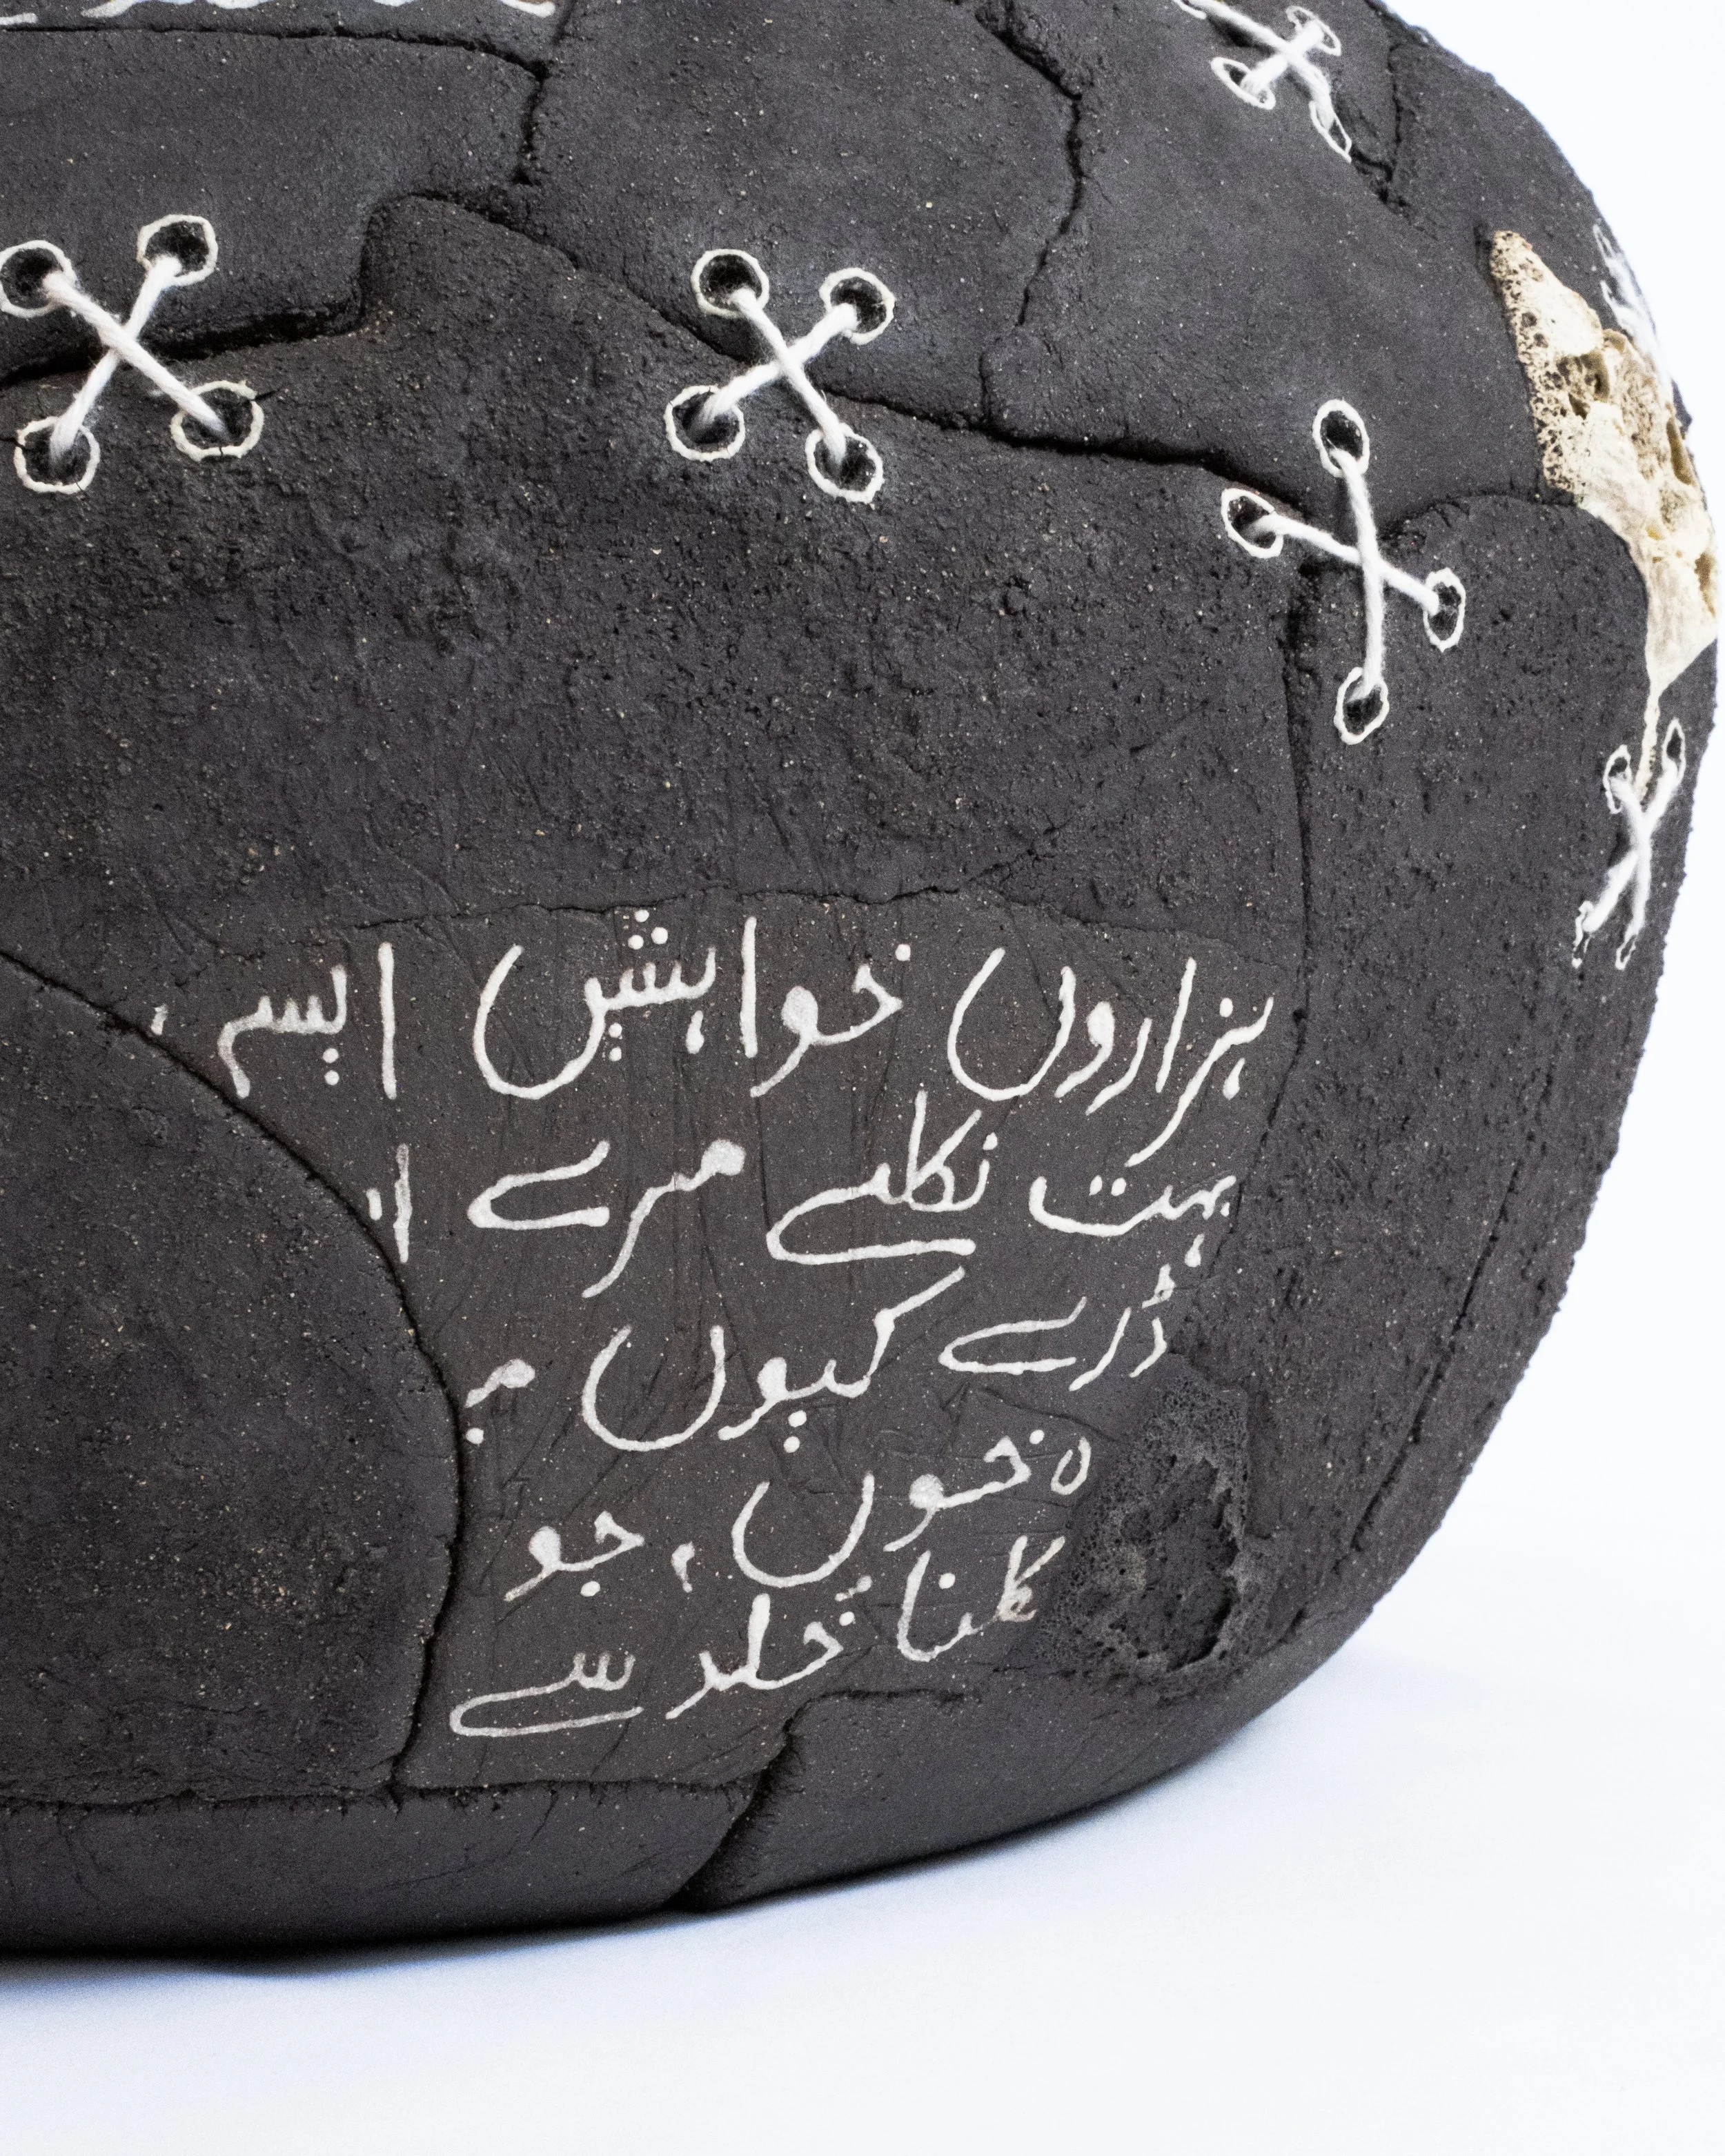 ہزاروں خواہشیں ایسی
بہت نکلے مرے ا
ڈرے کیوں م
ہ خوں، جو
کلنا خلد سے